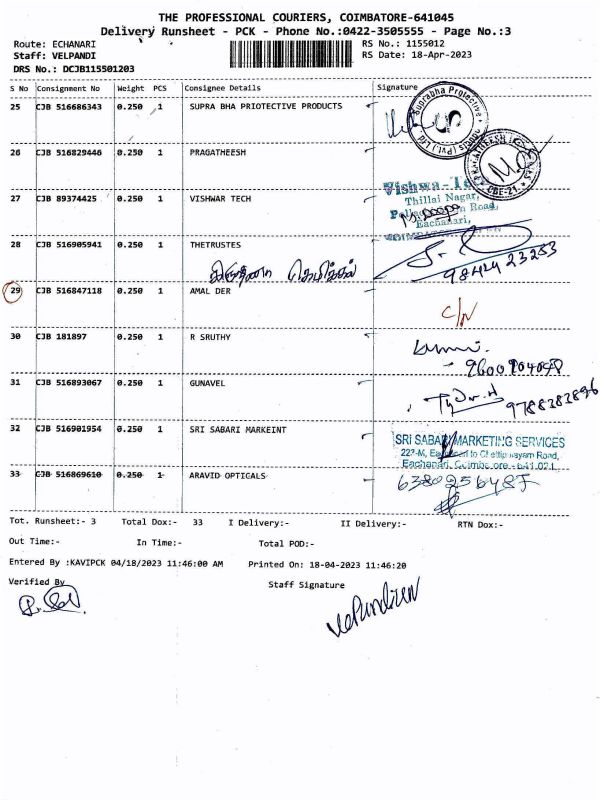 THE PROFESSIONAL COURIERS, COIMBATORE-641045
Delivery Runsheet - PCK - Phone No.:0422-3505555 - Page No.:3
Route: ECHANARI RS No.: 1155012
Staff: VELPANDI RS Date: 18-Apr-2023
DRS No.: DCJB115501203
S No Consignment No Weight PCS Consignee Details Signature
25 CJB 516686343 0.250 1 SUPRA BHA PRIOTECTIVE PRODUCTS
26 CJB 516829446 0.250 1 PRAGATHEESH
27 CJB 89374425 0.250 1 VISHWAR TECH
Thillai Nagar,
Eachanari,
28 CJB 516905941 0.250 1 THETRUSTES
98424 23253
29 CJB 516847118 0.250 1 AMAL DER
30 CJB 181897 0.250 1 R SRUTHY
31 CJB 516893067 0.250 1 GUNAVEL
9788282896
32 CJB 516901954 0.250 1 SRI SABARI MARKEINT
SRI SABARI MARKETING SERVICES
33 CJB 516869610 0.250 1 ARAVID OPTICALS
Tot. Runsheet:- 3 Total Dox:- 33 I Delivery:- II Delivery:- RTN Dox:-
Out Time:- In Time:- Total POD:-
Entered By :KAVIPCK 04/18/2023 11:46:00 AM Printed On: 18-04-2023 11:46:20
Verified By Staff Signature